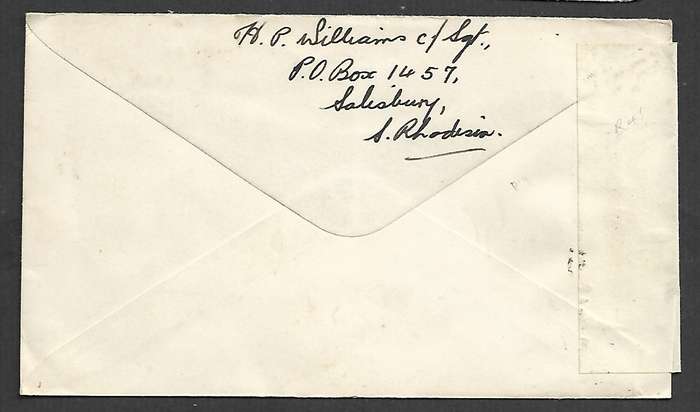 H. P. Williams c/ Sgt.,
P.O. Box 1457,
Salisbury,
S. Rhodesia.